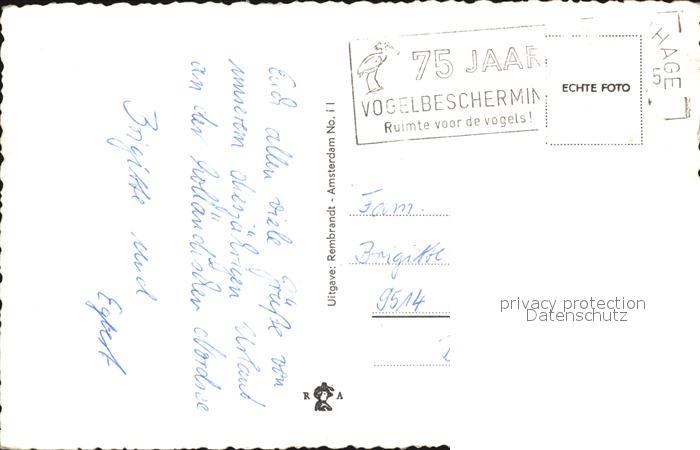 Euch allen viele Grüße von
unserem diesjährigen Urlaub
an der holländischen Nordsee
Brigitte und
Egbert
Uitgave: Rembrandt - Amsterdam No. 11
R A
75 JAAR
VOGELBESCHERMIN
Ruimte voor de vogels!
ECHTE FOTO
HAGE
5
Fam.
Brigitte
9514
privacy protection
Datenschutz